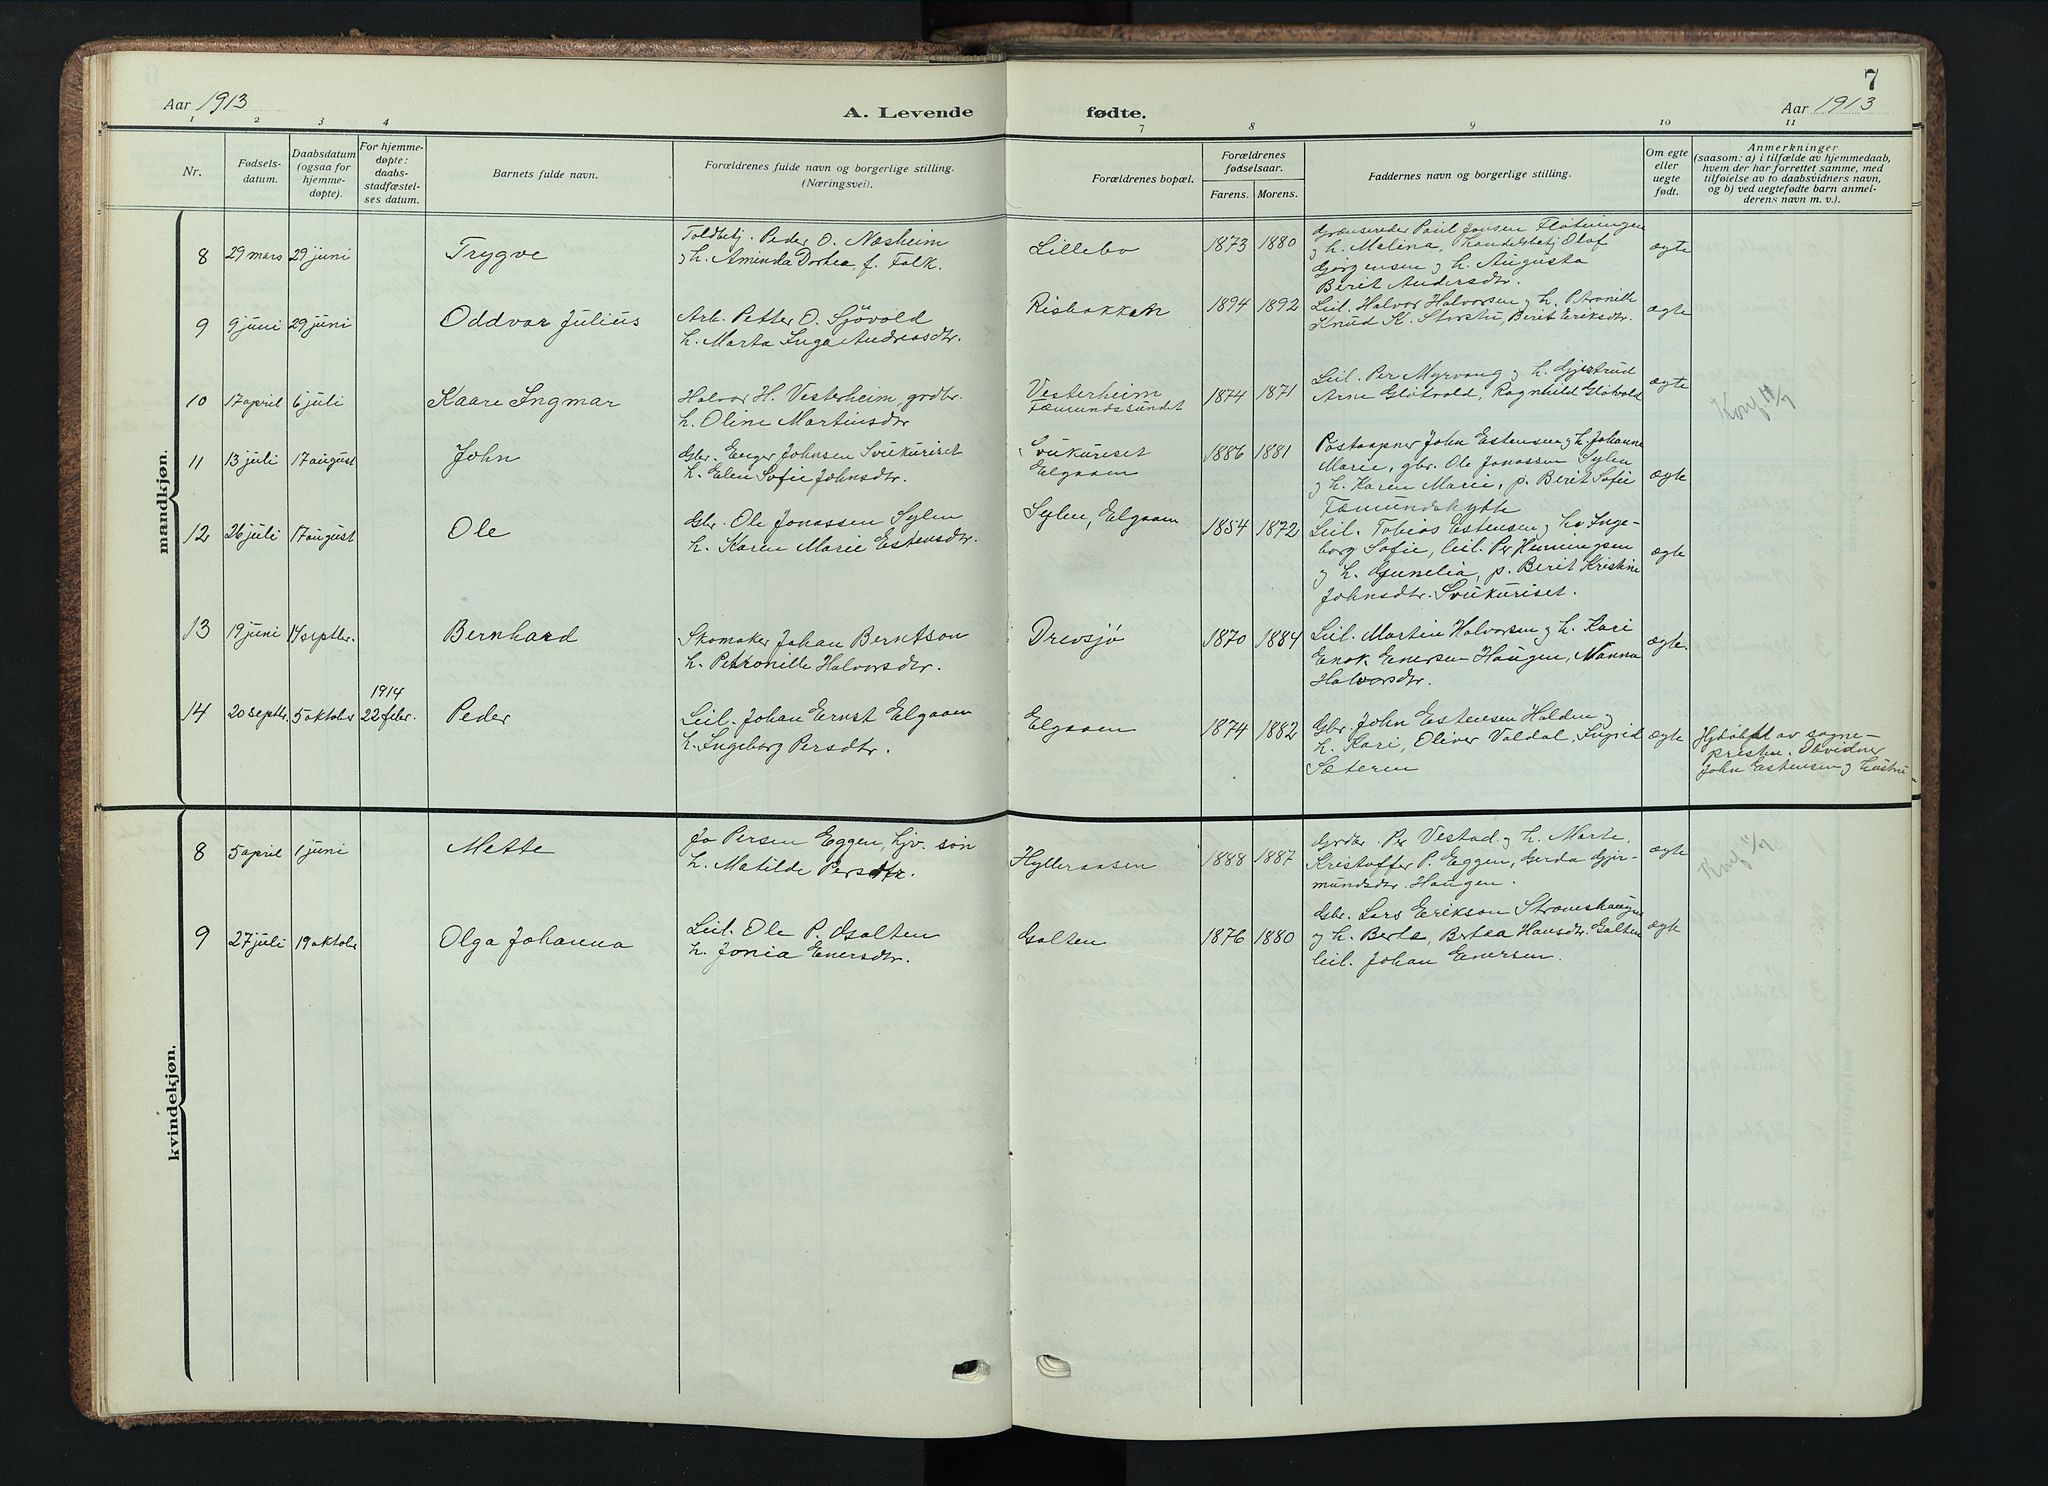 7
Aar 1913
A. Levende fødte.
Aar 1913
1 2 3 4 7 8 9 10 11
Nr.
Fødsels-
datum.
Daabsdatum
(ogsaa for
hjemme-
døpte).
For hjemme-
døpte:
daabs-
stadfæstel-
ses datum.
Barnets fulde navn.
Forældrenes fulde navn og borgerlige stilling.
(Næringsvei).
Forældrenes bopæl.
Forældrenes
fødselsaar.
Farens. Morens.
Faddernes navn og borgerlige stilling.
Om egte
eller
uegte
født.
Anmerkninger
(saasom: a) i tilfælde av hjemmedaab,
hvem der har forrettet samme, med
tilføielse av to daabsvidners navn,
og b) ved uegtefødte barn anmel-
derens navn m. v.).
mandkjøn.
8 29 mars 29 juni Trygve
Toldbetj. Peder O. Næsheim
og h. Aminda Dorhea f. Falk.
Lillebo 1873 1880
Grænserider Paul Jonsen Fløtningen
og h. Malina, Handelsbetj Olaf
Jørgensen og h. Augusta
Berit Andersdtr.
ægte
9 9 juni 29 juni Oddvar Julius
Arb. Petter O. Sjövold
h. Marta Inga Andreasdtr.
Risbakken 1894 1892
Leil. Halvor Halvorsen og h. Petronille
Knud K. Storstu, Berit Eriksdtr.
ægte
10 17 april 6 juli Kaare Ingmar
Halvor H. Vesterheim, grdbr.
h. Oline Martinsdtr
Vesterheim
Fæmundssundet
1874 1871
Leil. Per Myrvang og h. Gjertrud
Arne Gløtvold, Ragnhild Gløtvold
ægte
Konf. 11/9
11 13 juli 17 august John
Gbr. Enger Johnsen Svukuriset
h. Elen Sofie Johnsdtr.
Svukuriset
Elgaaen
1886 1881
Postaapner John Estensen og h. Johanne
Marie, gbr. Ole Jonassen Sylen
og h. Karen Marie, p. Berit Sofie
Fæmundshytte
ægte
12 26 juli 17 august Ole
Gbr. Ole Jonassen Sylen
h. Karen Marie Estensdtr.
Sylen, Elgaaen 1854 1872
Leil. Tobias Estensen og h. Inge-
borg Sofie, leil. Per Henningsen
og h. Gunelia, p. Berit Kristine
Johnsdtr. Svukuriset.
ægte
13 19 juni 14 septbr. Bernhard
Skomaker Johan Berntson
h. Petronille Halvorsdtr.
Drevsjø 1870 1884
Leil. Martin Halvorsen og h. Kari
Enok Enersen Haugen, Nanna
Halvorsdtr.
ægte.
14 20 septbr. 5 oktobr 1914
22 febr. Peder
Leil. Johan Ernst Elgaaen
h. Ingeborg Persdtr.
Elgaaen 1874 1882
Gbr. John Estensen Holden og
h. Kari, Oliver Valdal, Ingrid
Sæteren
ægte
Hjdøbt av sogne-
presten. Dbvidner
John Estensen og hustru
kvindekjøn.
8 5 april 1 juni Mette
Jo Persen Eggen, hjv. søn
h. Matilde Persdtr.
Hylleraasen 1888 1887
Grdbr. Per Vestad og h. Marte,
Kristoffer P. Eggen, Gerda Gjer-
mundsdtr. Haugen.
ægte
Konf. 11/9
9 27 juli 19 oktobr Olga Johanna
Leil. Ole P. Galten
h. Jonia Enersdtr.
Galten 1876 1880
Gbr. Lars Erikson Stromshaugen
og h. Berte, Bertea Hansdtr Galten
leil. Johan Enersen.
ægte